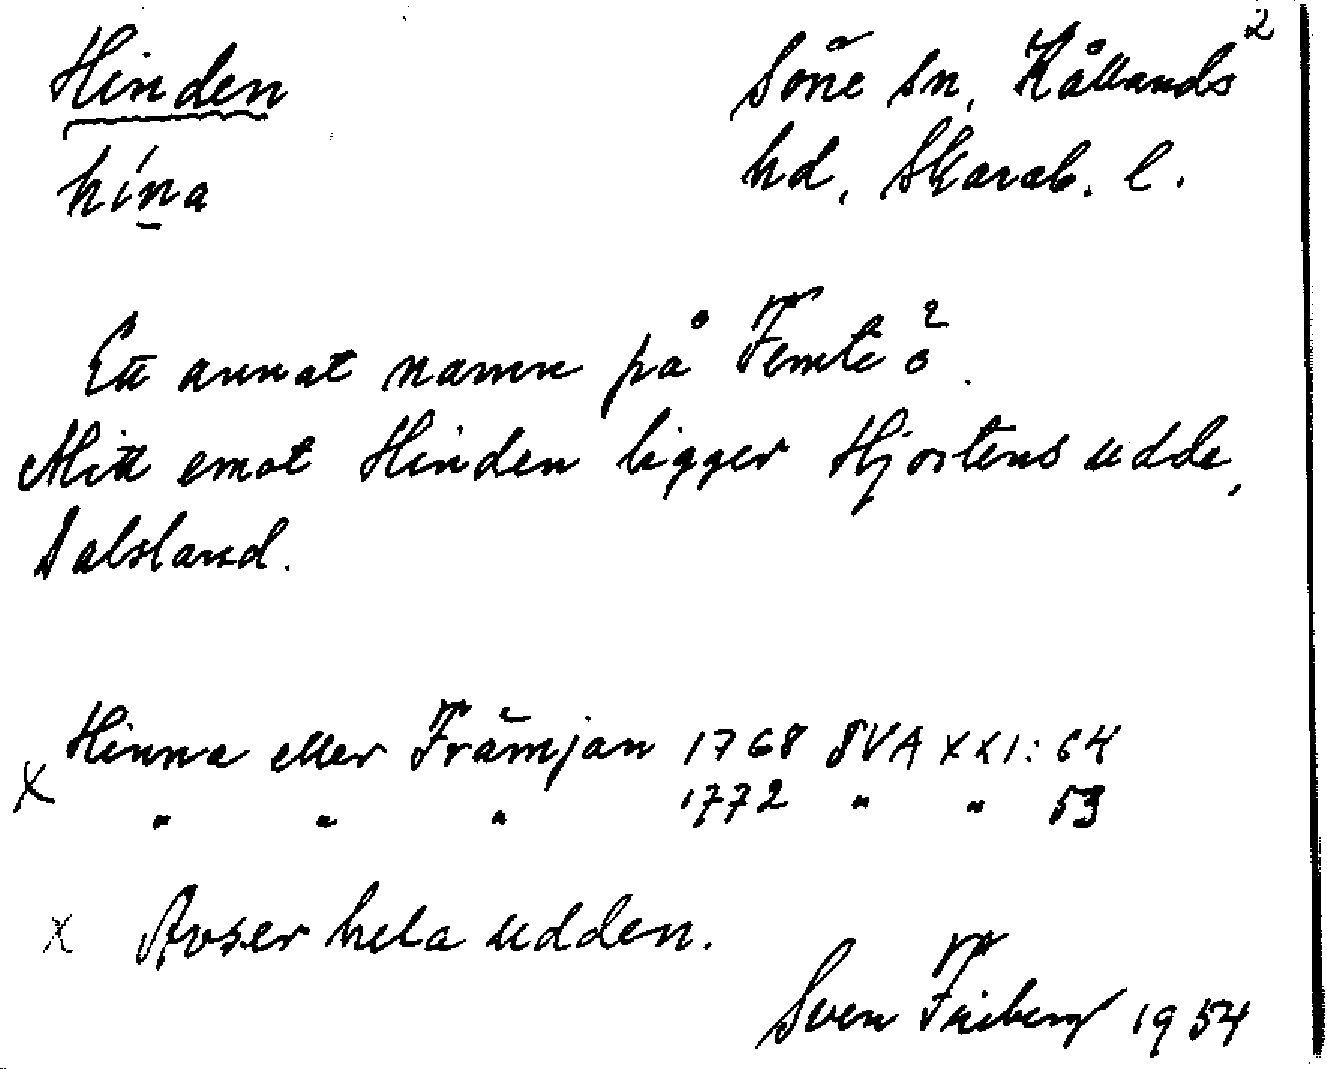 Hinden
Söne sn, Kållands 2
hína
hd, Skarab. l.
Ett annat namn på Femte ö.
Mitt emot Hinden ligger Hjortens udde,
Dalsland.
Hinna eller Främjan 1768 SVA XXI: 64
x " " " 1772 " " 53
x Avser hela udden.
Sven Friberg 1954